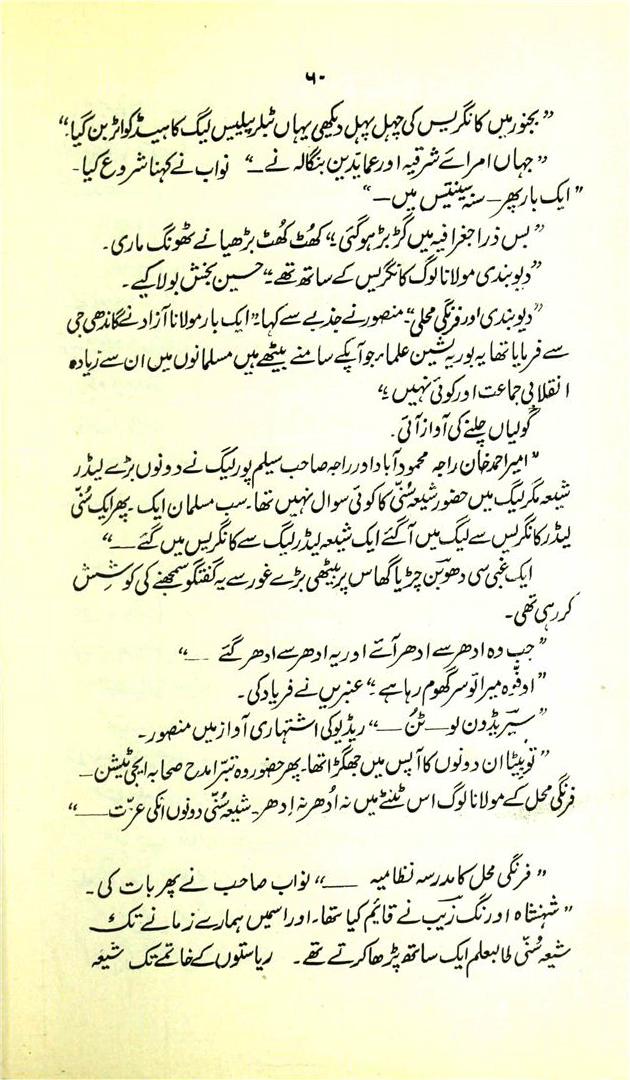 ۶۰
”بجنور میں کانگریس کی چہل پہل دیکھی یہاں ٹیلر پیلیس لیگ کا ہیڈ کوارٹر بن گیا؛“
”جہاں امرائے شرقیہ اور عمایدین بنگالہ نے —“ نواب نے کہنا شروع کیا۔
”ایک بار پھر — سنہ سینتیس میں —“
”بس ذرا جغرافیہ میں گڑبڑ ہوگئی“؛ کھٹ کھٹ بڑھیا نے ٹھونگ ماری۔
”دیوبندی مولانا لوگ کانگریس کے ساتھ تھے“؛ حسین بخش بولا کیے۔
”دیوبندی اور فرنگی محلی“۔ منصور نے جذبے سے کہا۔ ”ایک بار مولانا آزاد نے گاندھی جی
سے فرمایا تھا یہ بوریہ نشین علماء جو آپکے سامنے بیٹھے ہیں مسلمانوں میں ان سے زیادہ
انقلابی جماعت اور کوئی نہیں“؛
گولیاں چلنے کی آواز آئی۔
”امیر احمد خان راجہ محمود آباد اور راجہ صاحب سلیم پور لیگ کے دونوں بڑے لیڈر
شیعہ مگر لیگ میں حضور شیعہ سُنّی کا کوئی سوال نہیں تھا۔ سب مسلمان ایک۔ پھر ایک سُنّی
لیڈر کانگریس سے لیگ میں آگئے ایک شیعہ لیڈر لیگ سے کانگریس میں گئے —“
ایک غبی سی دھوبن چڑیا گھاس پر بیٹھی بڑے غور سے یہ گفتگو سمجھنے کی کوشش
کر رہی تھی۔
”جب وہ ادھر سے ادھر آئے اور یہ ادھر سے ادھر گئے —“
”اوفوہ میرا تو سر گھوم رہا ہے“؛ عنبریں نے فریاد کی۔
”سیریڈون لو — ٹن —“ ریڈیو کی اشتہاری آواز میں منصور۔
”تو بیٹا ان دونوں کا آپس میں جھگڑا تھا۔ پھر حضور وہ تبرّا مدح صحابہ ایجی ٹیشن —
فرنگی محل کے مولانا لوگ اس ٹنٹے میں نہ اُدھر نہ اِدھر۔ شیعہ سُنّی دونوں انکی عزّت —“
”فرنگی محل کا مدرسہ نظامیہ —“ نواب صاحب نے پھر بات کی۔
”شہنشاہ اورنگ زیب نے قائیم کیا تھا۔ اور اسمیں ہمارے زمانے تک
شیعہ سُنّی طالبعلم ایک ساتھ پڑھا کرتے تھے۔ ریاستوں کے خاتمے تک شیعہ